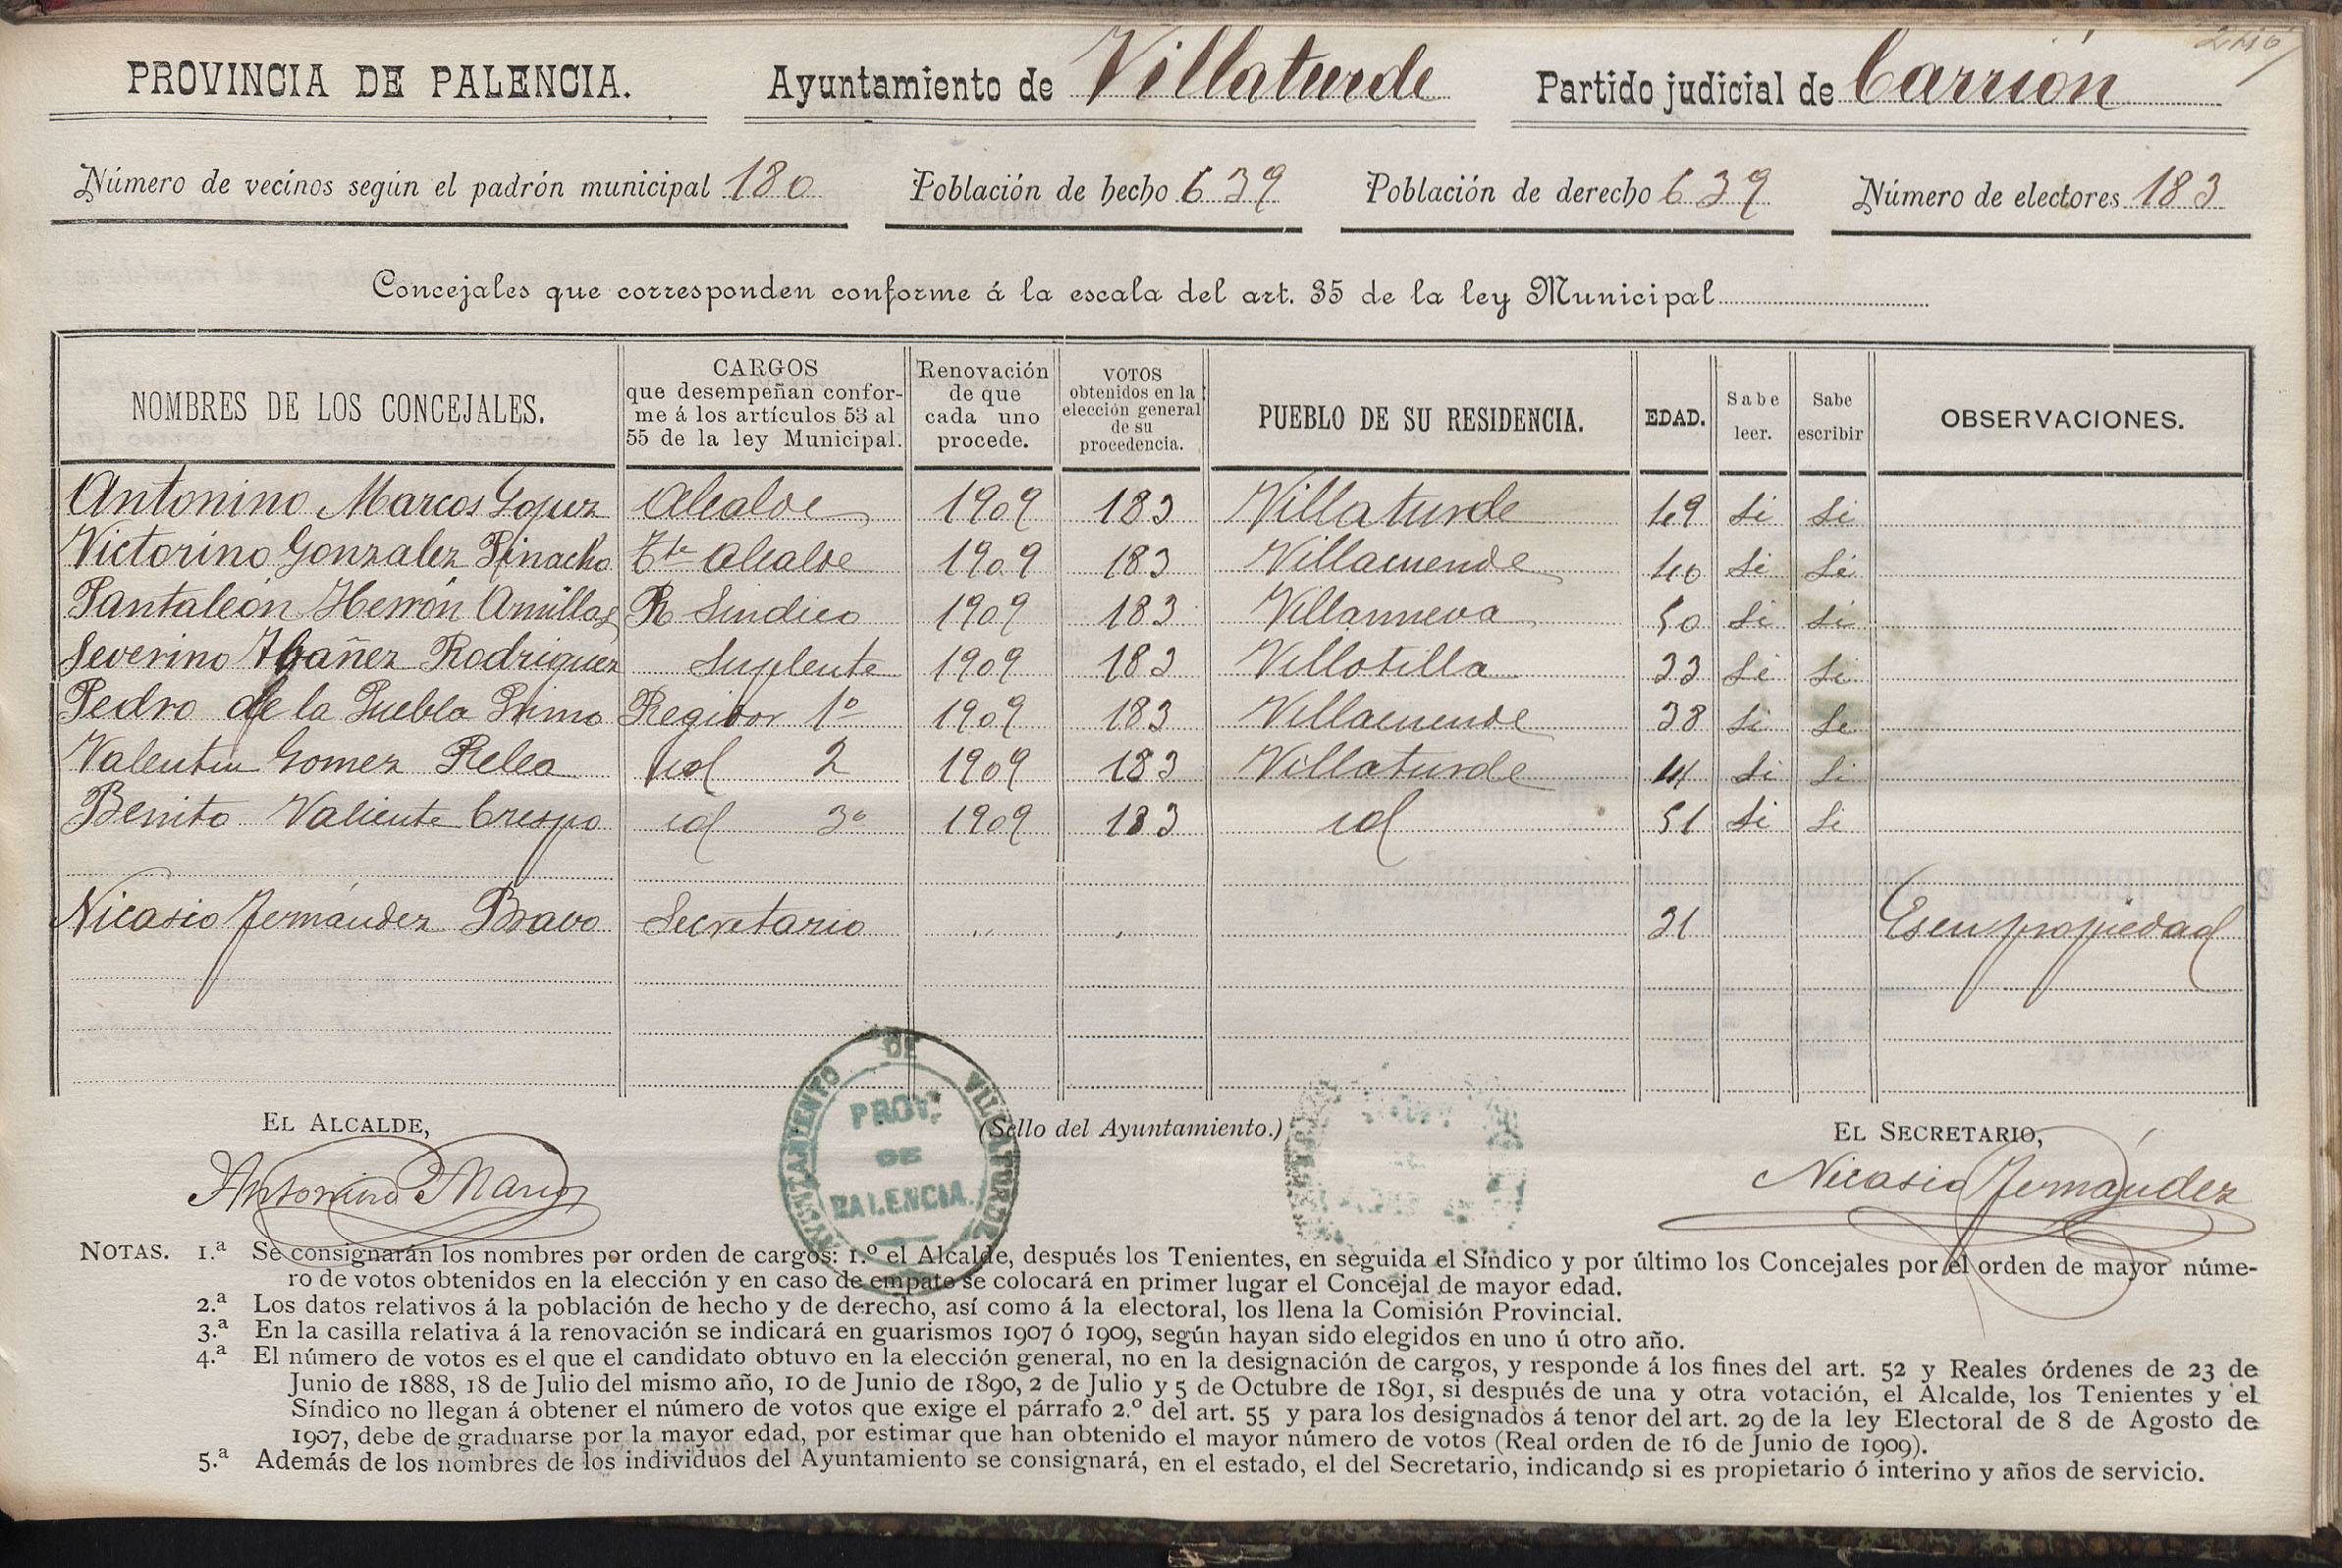 PROVINCIA DE PALENCIA. Ayuntamiento de Villaturde Partido judicial de Carrión
Número de vecinos según el padrón municipal 180 Población de hecho 639 Población de derecho 639 Número de electores 183
Concejales que corresponden conforme á la escala del art. 35 de la ley Municipal
NOMBRES DE LOS CONCEJALES.
CARGOS
que desempeñan confor-
me á los artículos 53 al
55 de la ley Municipal.
Renovación
de que
cada uno
procede.
VOTOS
obtenidos en la
elección general
de su
procedencia.
PUEBLO DE SU RESIDENCIA.
EDAD.
Sabe
leer.
Sabe
escribir
OBSERVACIONES.
Antonino Marcos Lopez Alcalde 1909 183 Villaturde 49 Si Si
Victorino Gonzalez Pinacho Tte Alcalde 1909 183 Villacuende 40 Si Si
Pantaleón Herrón Arnillas R Sindico 1909 183 Villanueva 50 Si Si
Severino Ibañez Rodriguez Suplente 1909 183 Villotilla 33 Si Si
Pedro de la Puebla Primo Regidor 1º 1909 183 Villacuende 38 Si Si
Valentin Gomez Relea id 2 1909 183 Villaturde 41 Si Si
Benito Valiente Crespo id 3º 1909 183 id 51 Si Si
Nicasio Fernández Bravo Secretario 31 Es en propiedad
EL ALCALDE,
(Sello del Ayuntamiento.)
EL SECRETARIO,
Antonino Marcos
AYUNTAMIENTO DE VILLATURDE
PROV. DE PALENCIA
Nicasio Fernández
NOTAS. 1.ª Se consignarán los nombres por orden de cargos: 1.º el Alcalde, después los Tenientes, en seguida el Síndico y por último los Concejales por el orden de mayor núme-
ro de votos obtenidos en la elección y en caso de empate se colocará en primer lugar el Concejal de mayor edad.
2.ª Los datos relativos á la población de hecho y de derecho, así como á la electoral, los llena la Comisión Provincial.
3.ª En la casilla relativa á la renovación se indicará en guarismos 1907 ó 1909, según hayan sido elegidos en uno ú otro año.
4.ª El número de votos es el que el candidato obtuvo en la elección general, no en la designación de cargos, y responde á los fines del art. 52 y Reales órdenes de 23 de
Junio de 1888, 18 de Julio del mismo año, 10 de Junio de 1890, 2 de Julio y 5 de Octubre de 1891, si después de una y otra votación, el Alcalde, los Tenientes y el
Síndico no llegan á obtener el número de votos que exige el párrafo 2.º del art. 55 y para los designados á tenor del art. 29 de la ley Electoral de 8 de Agosto de
1907, debe de graduarse por la mayor edad, por estimar que han obtenido el mayor número de votos (Real orden de 16 de Junio de 1909).
5.ª Además de los nombres de los individuos del Ayuntamiento se consignará, en el estado, el del Secretario, indicando si es propietario ó interino y años de servicio.